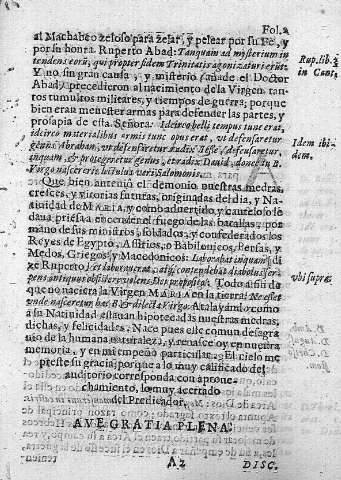 Fol. 2
al Machabeo zeloso para zelar, y pelear por su Fè, y
por su honra Ruperto Abad: Tanquam ad mysterium in-
tendens eorũ, qui propter fidem Trinitatis agonizaturi erãt:
Rup. lib. 2
in Cant,
Y no sin gran causa, y misterio (añade el Doctor
Abad) precedieron al nacimento de la Virgen tan-
tos tumultos militares, y tiempos de guerra; porque
bien eran menester armas para defender las partes, y
prosapia de esta Señora: Ideirco belli tempus tunc erat,
idcirco materialibus armis tunc opus erat, vt defensaretur
Idem ibi-
dem.
genus Abraham, vt defensaretur radix Iesse, defensaretur,
inquam, & protegeretur genus, et radix Dauid, donec in B.
Virgo nasceretur lectulus veri Salomonis.
Que bien anteviò el demonio nuestras medras,
creces, y vitorias futuras, originadas del dia, y Na-
tividad de MARIA, y como advertido, y cauteloso
dava priesa a encender el fuego de las batallas, por
mano de sus ministros, soldados, y confederados los
Reyes de Egypto, Assirios, ò Babilonicos, Persas, y
Medos, Griegos, y Macedonicos: Laborabat inquam (di-
ze Ruperto) Et laborauerat, atque contendebat diabolus ser-
vbi supra:
pens antiquus obsistere consilio Dei proposito. Todo a fin de
que no naciera la Virgen MARIA en la tierra: Ne esset
vnde nasceretur hæc B. et dilecta Virgo. Atalayò como a
su Natividad estavan hipotecadas nuestras medras,
dichas, y felicidades. Nace pues el comun desagra-
vio de la humana naturaleza, y renasce oy en nuestra
memoria, y en mi empeño particular. El cielo me
preste su gracia, porque a lo muy calificado del
auditorio corresponda con aprove-
chamiento, lo muy acertado
del Predicador.
AVE GRATIA PLENA.
A2
DISC.